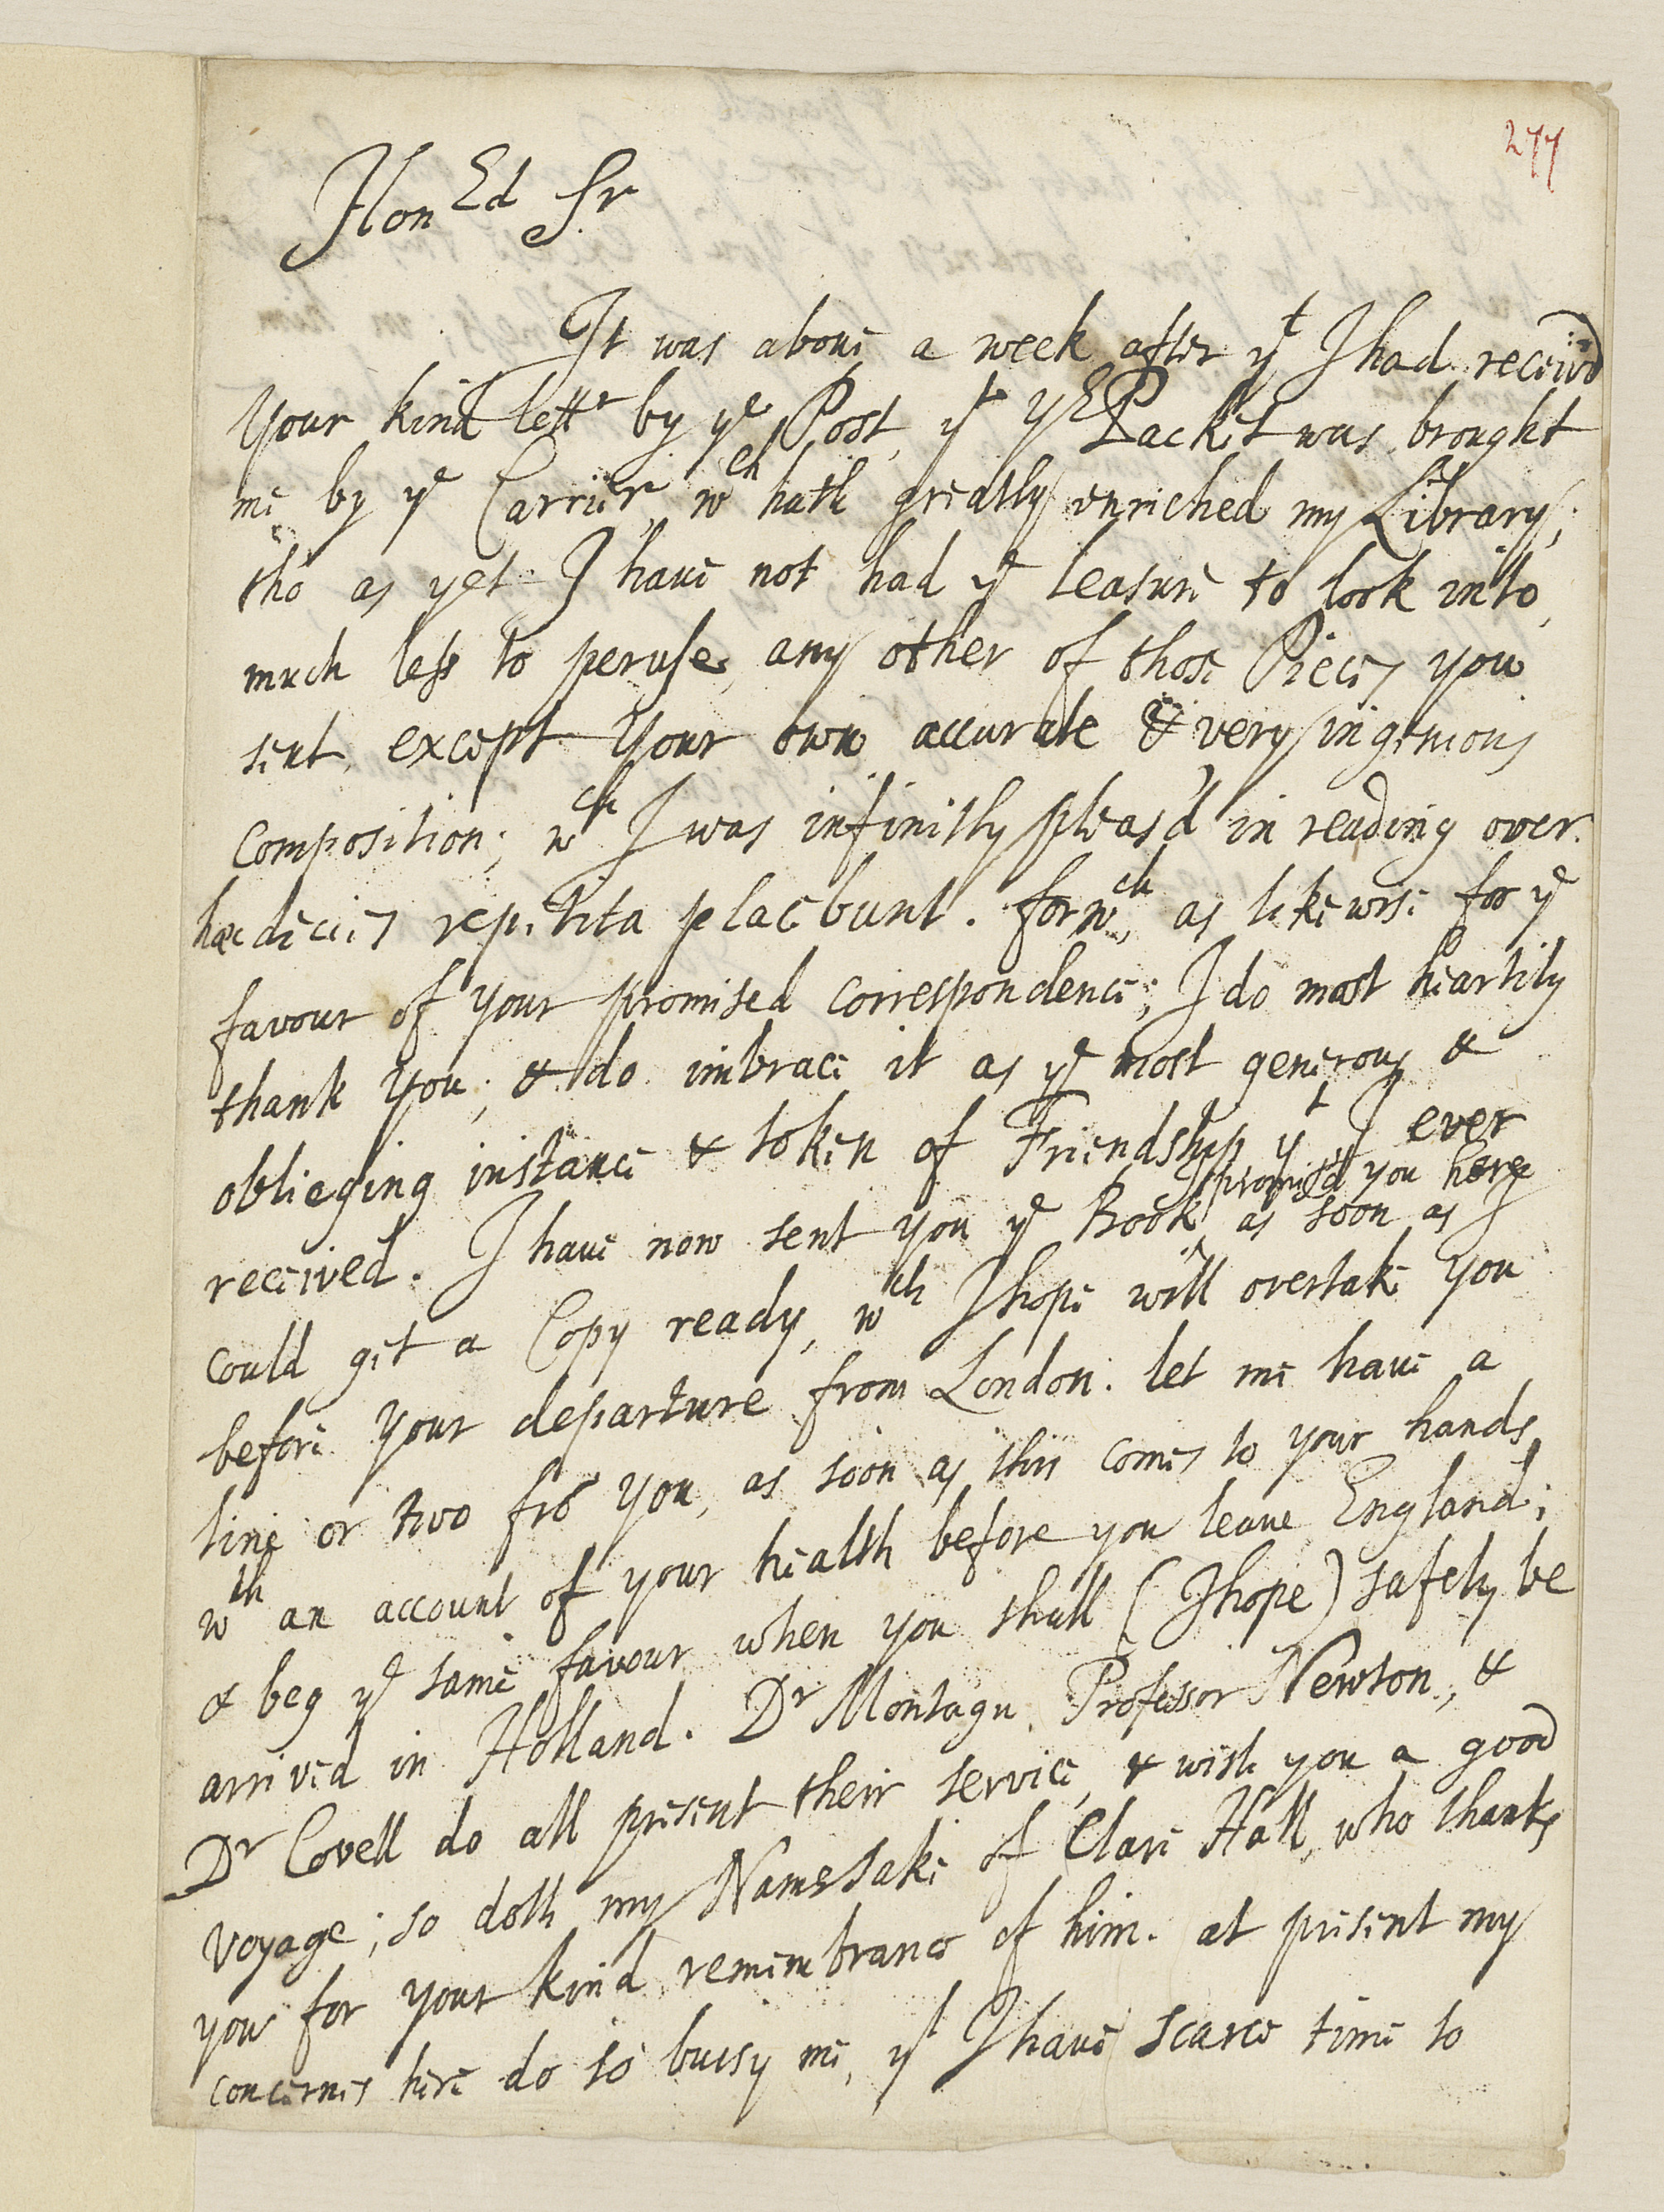 277
Hon^Ed S^r.
It was above a week after y^t I had receiv'd
your kind lett^r by y^e Post, y^t y^e Packet was brought
me by y^e Carrier, w^ch hath greatly enriched my Library;
tho as yet I have not had y^e leasure to look into,
much less to peruse, any other of those Pieces you
sent, except your own accurate & very ingenious
composition; w^ch I was infinitly pleas'd in reading over.
hæc decies repetita placebunt. for w^ch, as likewise for y^e
favour of your promised correspondence; I do most heartily
thank you; & do imbrace it as y^e most generous &
oblieging instance & token of Friendship y^t I ever
I promis'd you here
received. I have now sent you y^e Book, as soon as I
could get a Copy ready, w^ch I hope will overtake you
before your departure from London. let me have a
line or two frō you, as soon as this comes to your hands,
w^th an account of your health before you leave England;
& beg y^e same favour when you shall (I hope) safely be
arrived in Holland. D^r Montagu, Professor Newton, &
D^r Covell do all present their service, & wish you a good
voyage; so doth my Namesake of Clare Hall, who thanks
you for your kind remembrance of him. at present my
concernes here do so buisy me, y^t I have scarce time to